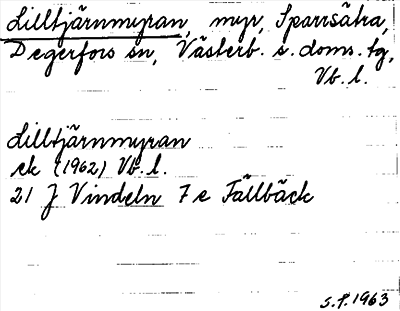 Lilltjärnmyran, myr, Sparrsätra,
Degerfors sn, Västerb. s. doms. tg,
Vb. l.
Lilltjärnmyran
ek (1962) Vb. l.
21 J Vindeln 7 e Fällbäck
S.P. 1963